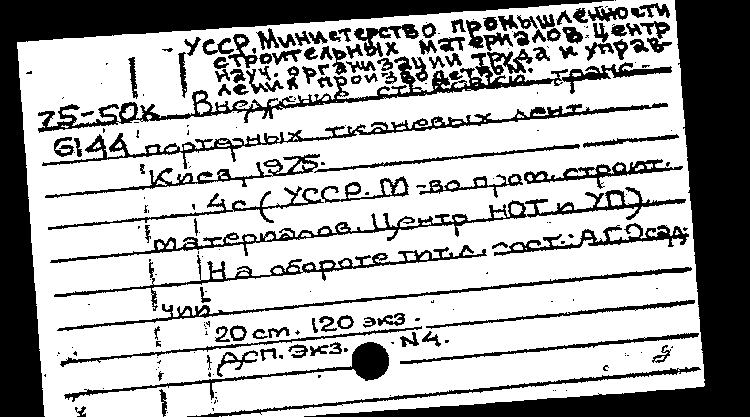 УССР. Министерство промышленности
строительных материалов. Центр
науч. организации труда и управ-
ления производством.
75-50к Внедрение стыковки транс-
6144 портерных тканевых лент.
Киев, 1975.
4с (УССР. М-во пром. строит.
материалов. Центр НОТ и УП).
На обороте тит.л. сост.: А.Г. Осад-
чий.
20 ст. 120 экз.
Дсп. экз. N4.